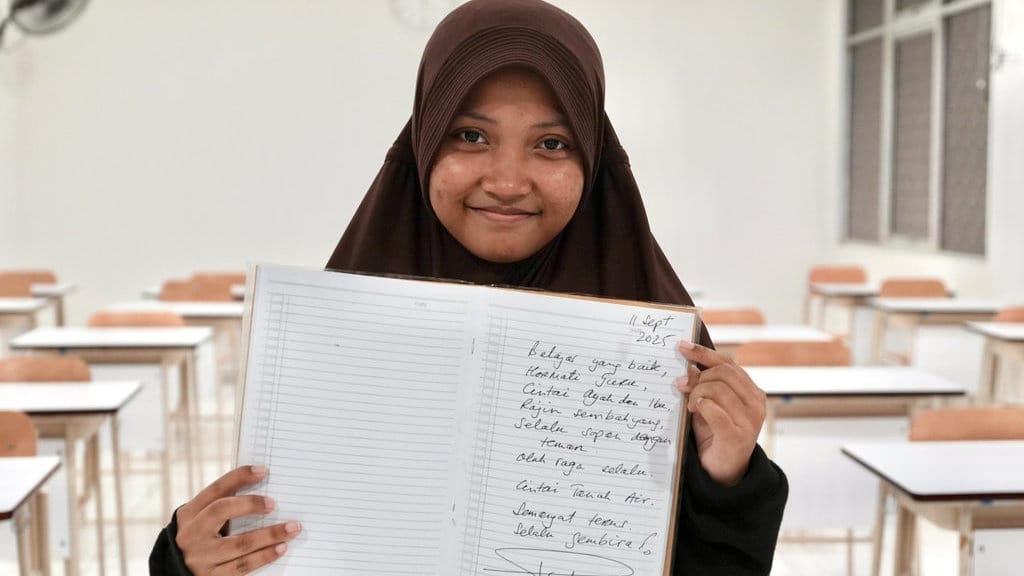 11 Sept
2025
Belajar yang baik,
Hormati guru,
Cintai Ayah dan Ibu,
Rajin sembahyang,
Selalu sopan dengan
teman
Olah raga selalu
Cintai Tanah Air.
Semangat terus.
Selalu gembira!